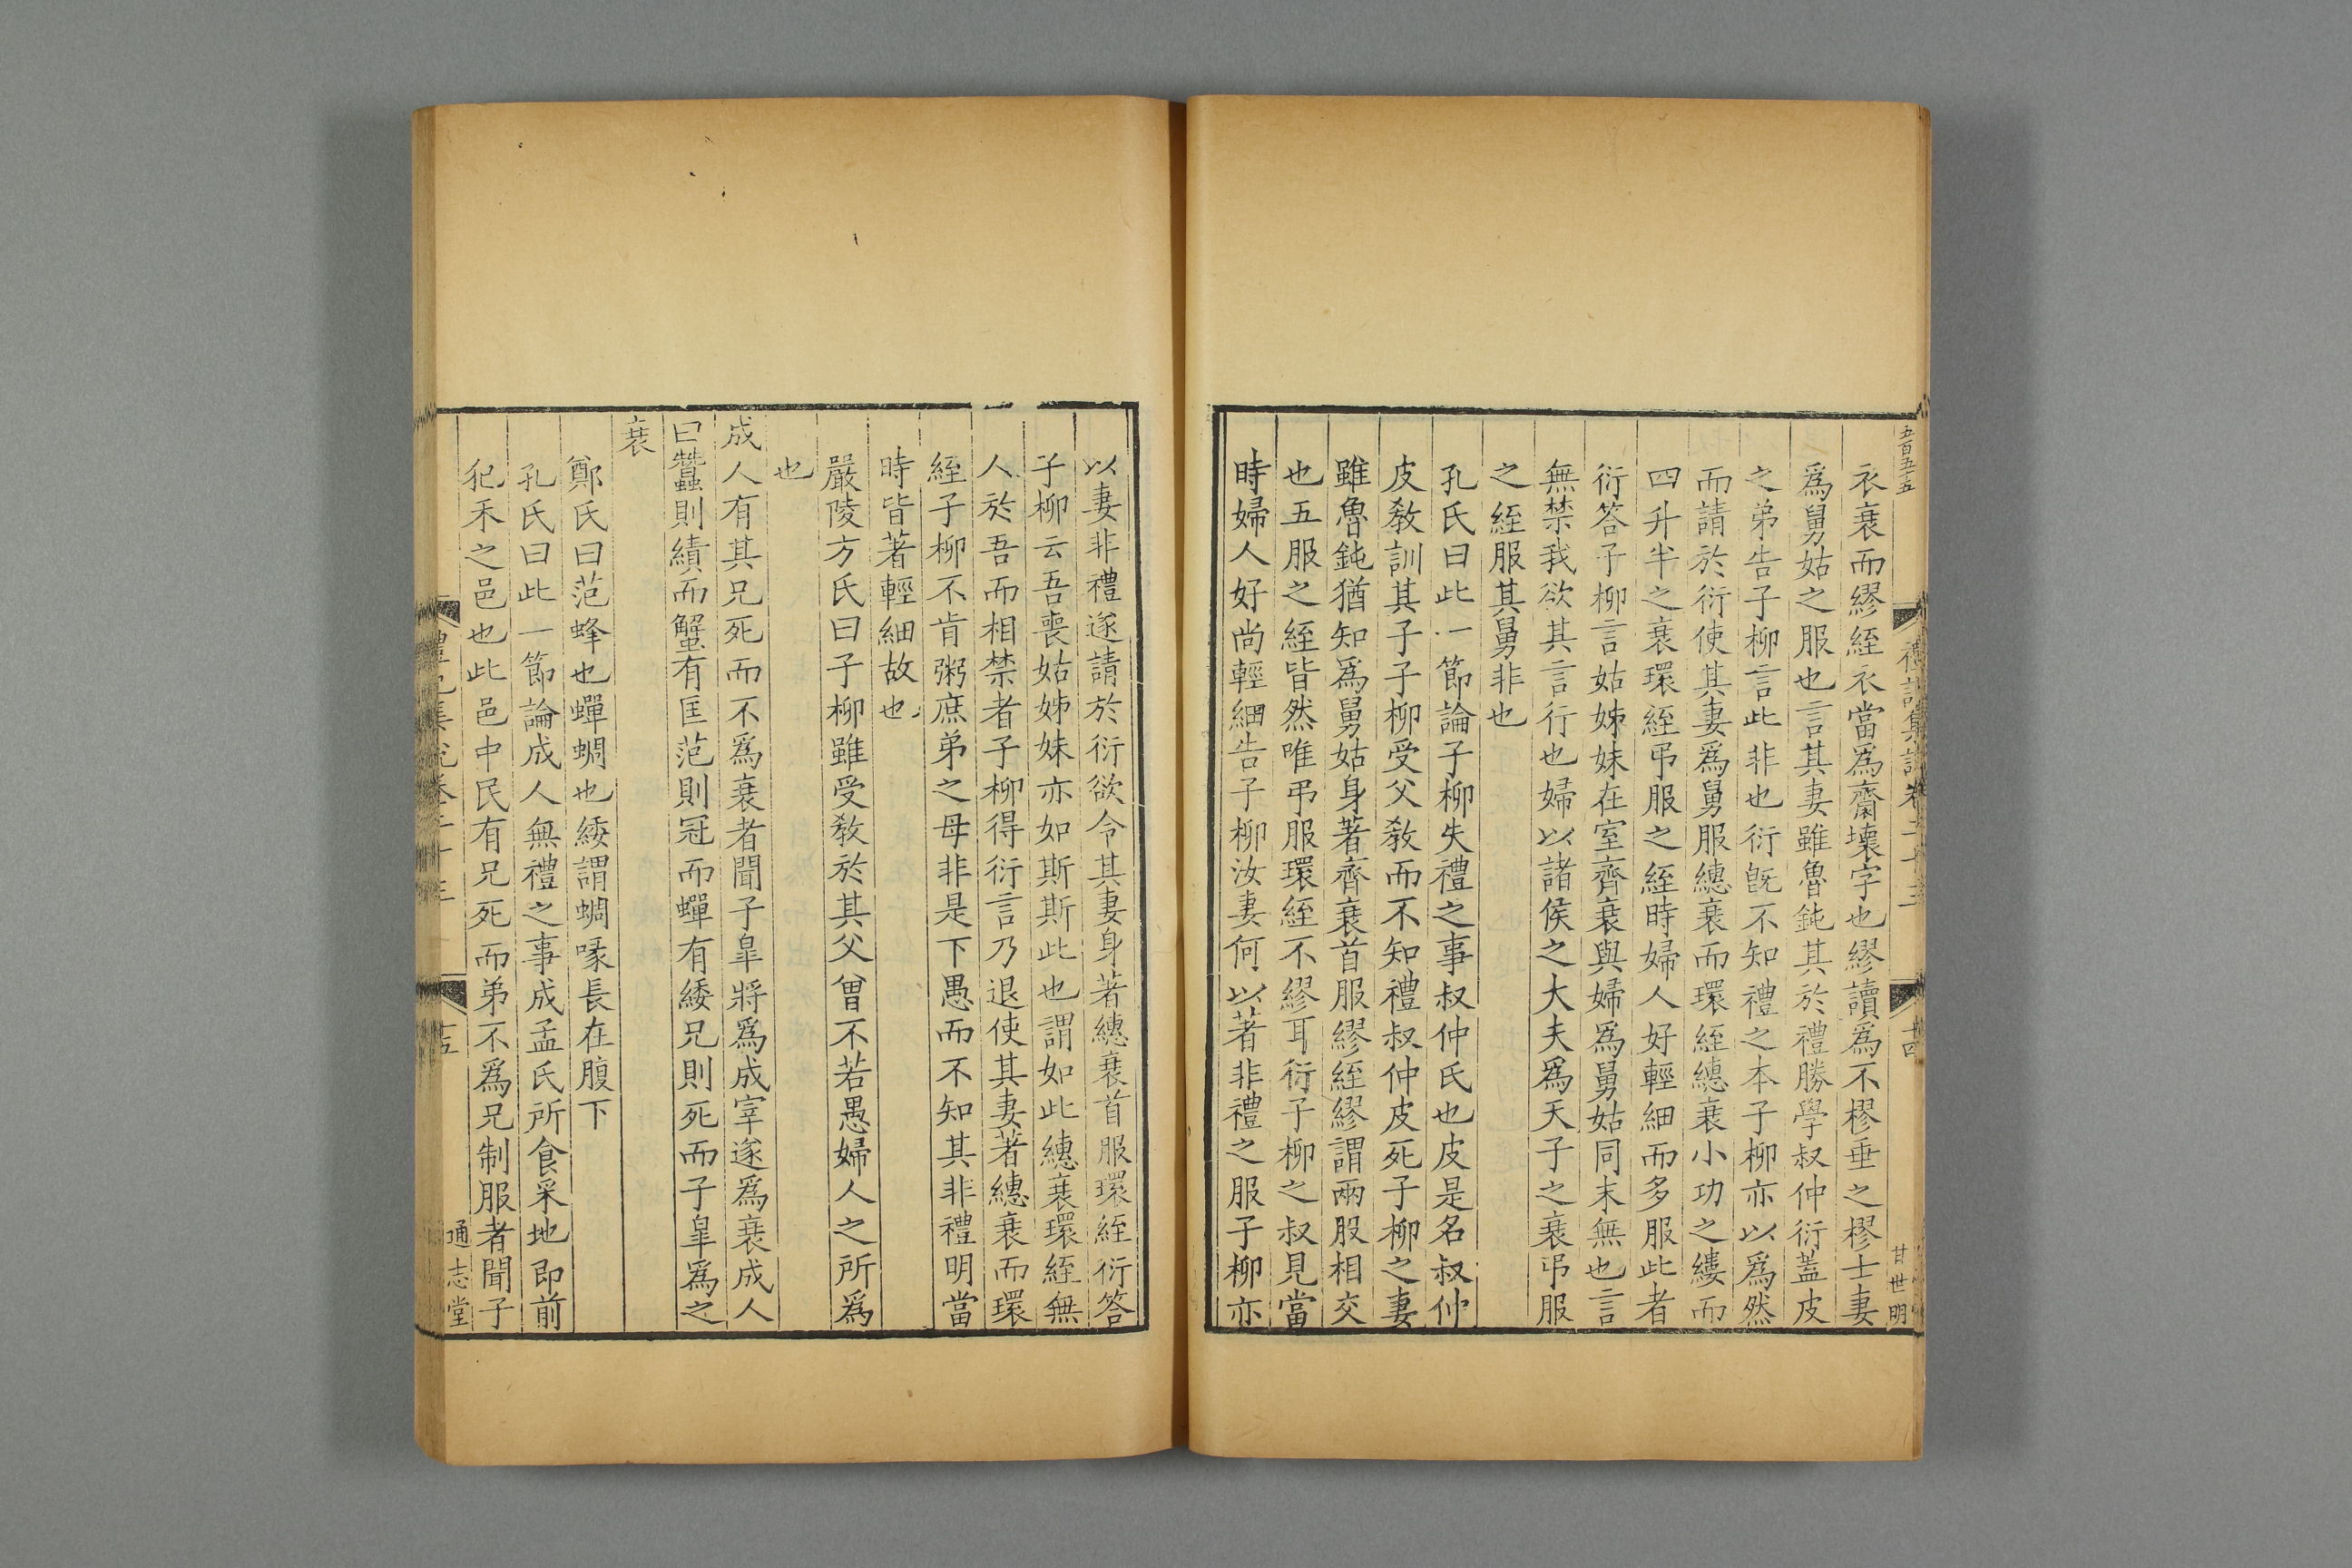 五百五十五
禮記集說卷二十三
十四
甘世明
衣衰而繆絰衣當爲齋壞字也繆讀爲不樛垂之樛士妻
爲舅姑之服也言其妻雖魯鈍其於禮勝學叔仲衍蓋皮
之弟告子柳言此非也衍旣不知禮之本子柳亦以爲然
而請於衍使其妻爲舅服繐衰而環絰繐衰小功之縷而
四升半之衰環絰弔服之絰時婦人好輕細而多服此者
衍答子柳言姑姊妹在室齊衰與婦爲舅姑同末無也言
無禁我欲其言行也婦以諸侯之大夫爲天子之衰弔服
之絰服其舅非也
孔氏曰此一節論子柳失禮之事叔仲氏也皮是名叔仲
皮敎訓其子子柳受父敎而不知禮叔仲皮死子柳之妻
雖魯鈍猶知爲舅姑身著齊衰首服繆絰繆謂兩股相交
也五服之絰皆然唯弔服環絰不繆耳衍子柳之叔見當
時婦人好尚輕細告子柳汝妻何以著非禮之服子柳亦
以妻非禮遂請於衍欲令其妻身著繐衰首服環絰衍答
子柳云吾喪姑姊妹亦如斯斯此也謂如此繐衰環絰無
人於吾而相禁者子柳得衍言乃退使其妻著繐衰而環
絰子柳不肯粥庶弟之母非是下愚而不知其非禮明當
時皆著輕細故也
嚴陵方氏曰子柳雖受敎於其父曾不若愚婦人之所爲
也
成人有其兄死而不爲衰者聞子皐將爲成宰遂爲衰成人
曰蠶則績而蟹有匡范則冠而蟬有緌兄則死而子皐爲之
衰
鄭氏曰范蜂也蟬蜩也緌謂蜩喙長在腹下
孔氏曰此一節論成人無禮之事成孟氏所食采地即前
犯禾之邑也此邑中民有兄死而弟不爲兄制服者聞子
禮記集說卷二十三
十五
通志堂